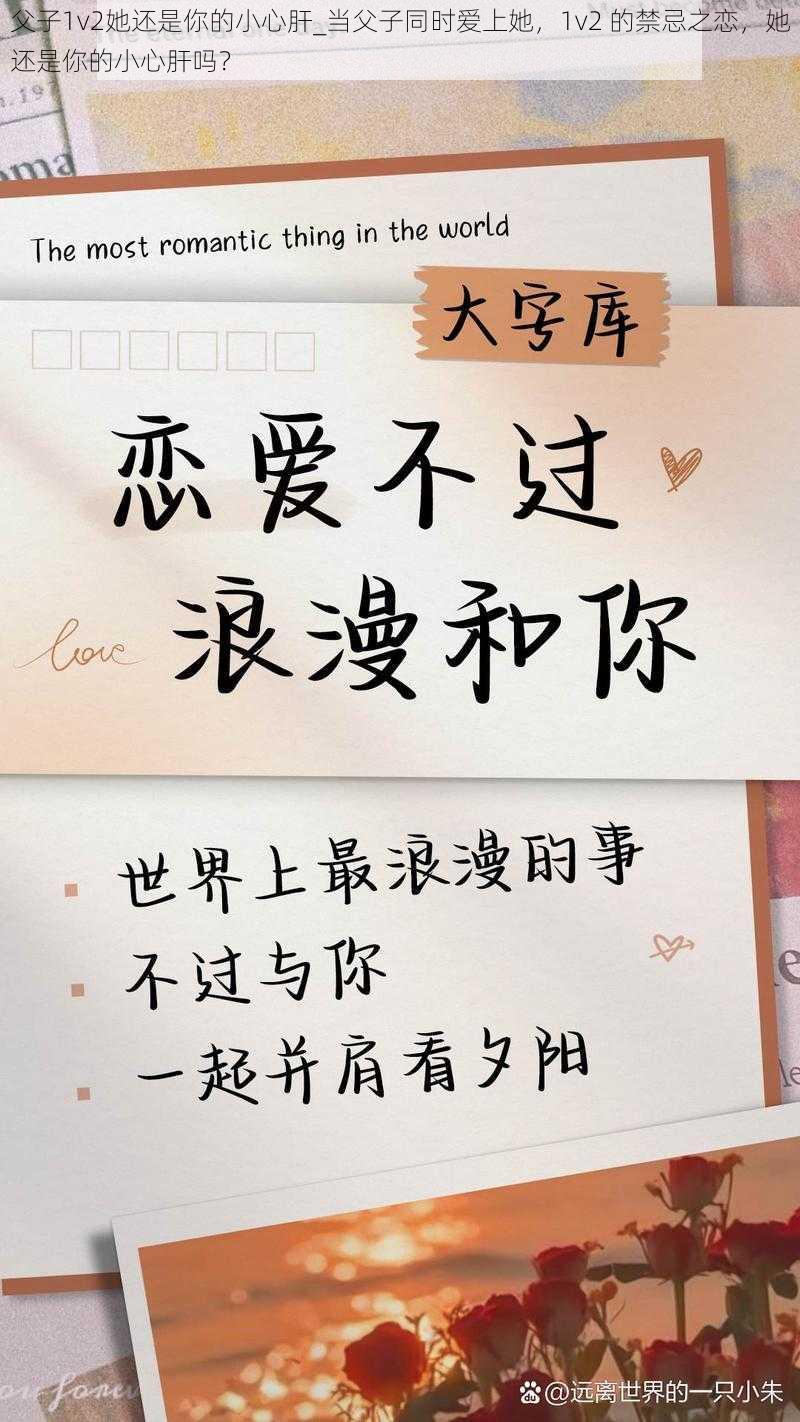 父子1v2她还是你的小心肝_当父子同时爱上她，1v2 的禁忌之恋，她
还是你的小心肝吗？
The most romantic thing in the world
大字库
恋爱不过
love
浪漫和你
世界上最浪漫的事
不过与你
一起并肩看夕阳
@远离世界的一只小朱